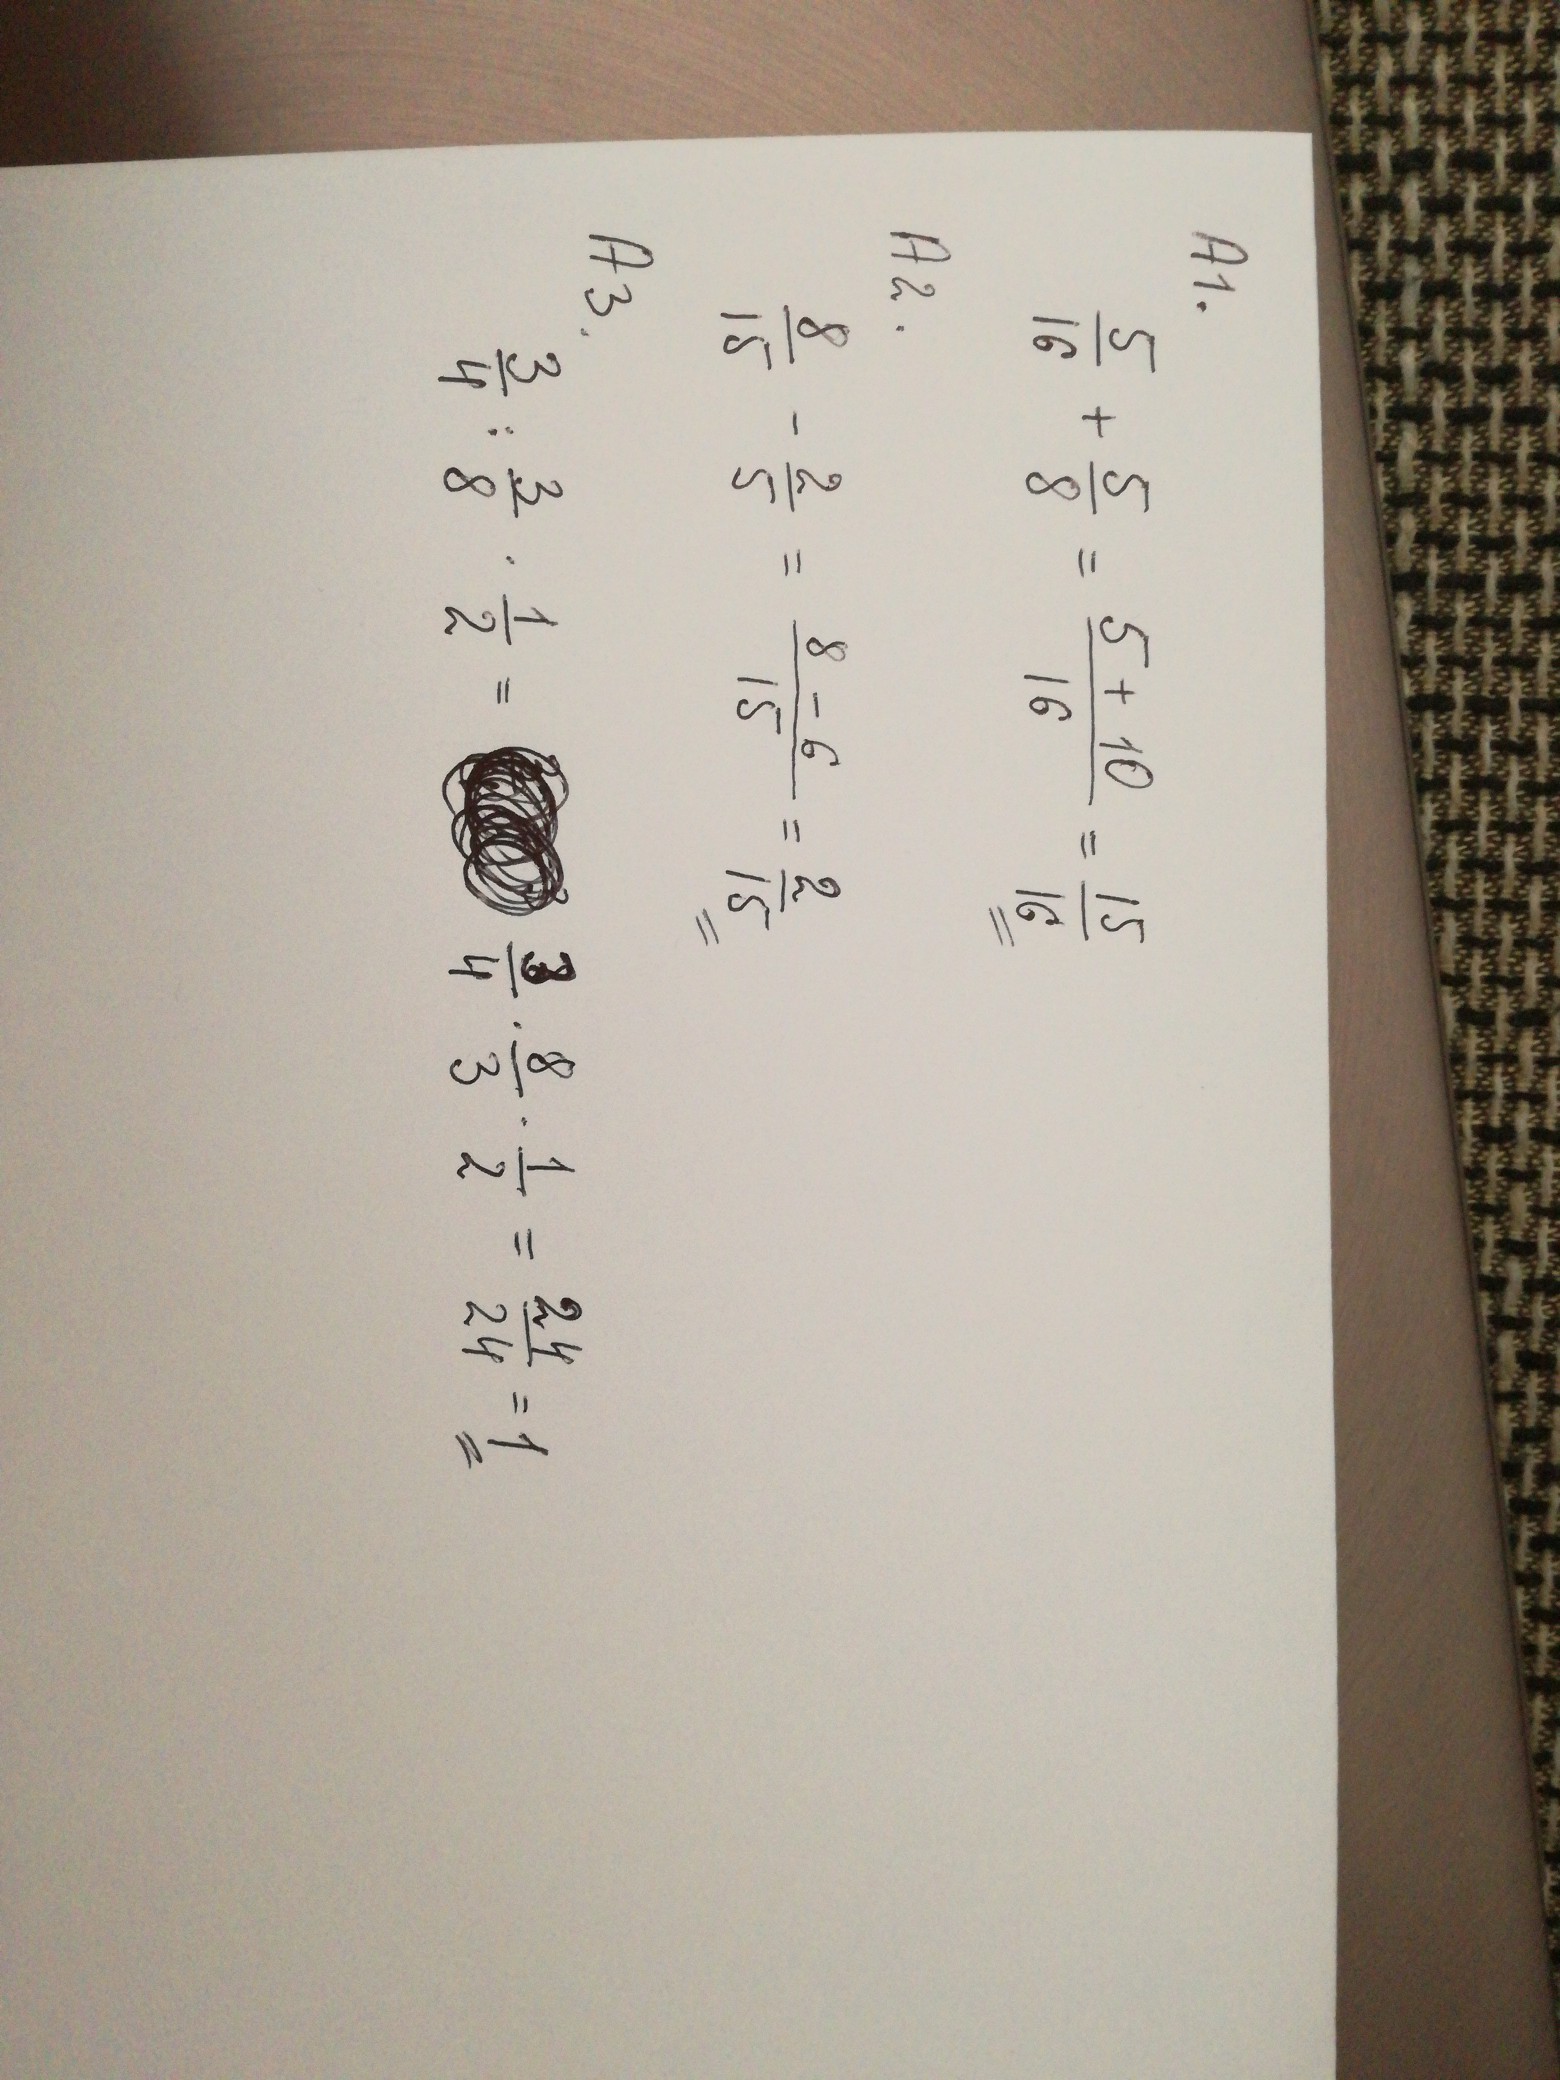 A1.
5/16 + 5/8 = (5 + 10)/16 = 15/16
A2.
8/15 - 2/5 = (8 - 6)/15 = 2/15
A3.
3/4 : 3/8 · 1/2 = 3/4 · 8/3 · 1/2 = 24/24 = 1